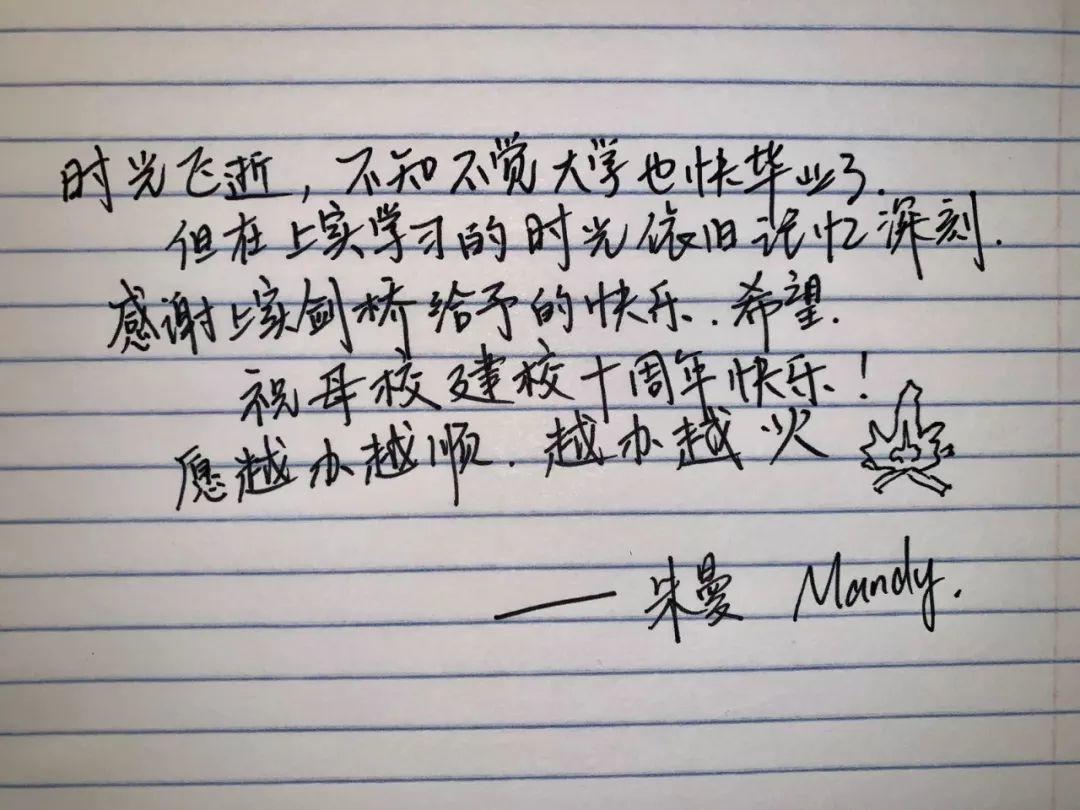 时光飞逝，不知不觉大学也快毕业了.
但在上实学习的时光依旧记忆深刻.
感谢上实剑桥给予的快乐.希望.
祝母校建校十周年快乐！
愿越办越顺.越办越火
——朱曼 Mandy.